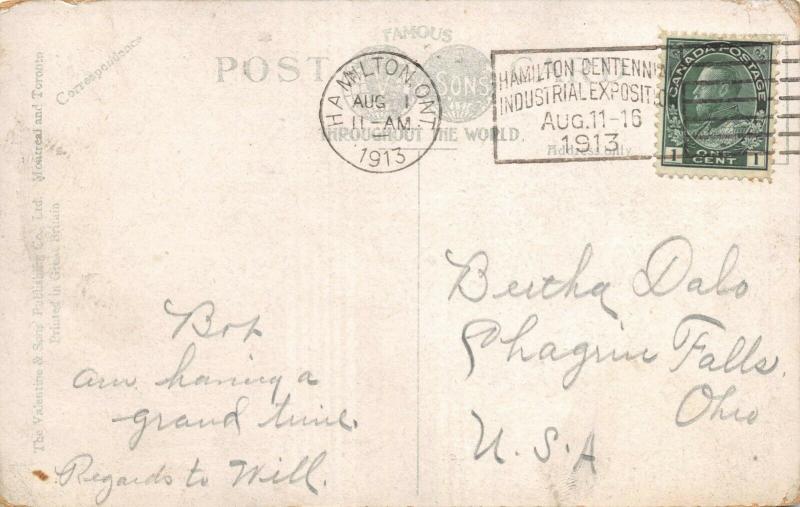 FAMOUS
POST CARD
SONS
THROUGHOUT THE WORLD.
Address only
HAMILTON, ONT.
AUG 1
11-AM
1913
HAMILTON CENTENNI
INDUSTRIAL EXPOSIT
AUG. 11-16
1913
CANADA POSTAGE
1 ONE CENT 1
Correspondence
The Valentine & Sons' Publishing Co., Ltd. Montreal and Toronto
Printed in Great Britain
am having a
grand time.
Regards to Will.
Bertha Dalo
Chagrin Falls.
Ohio
U. S. A